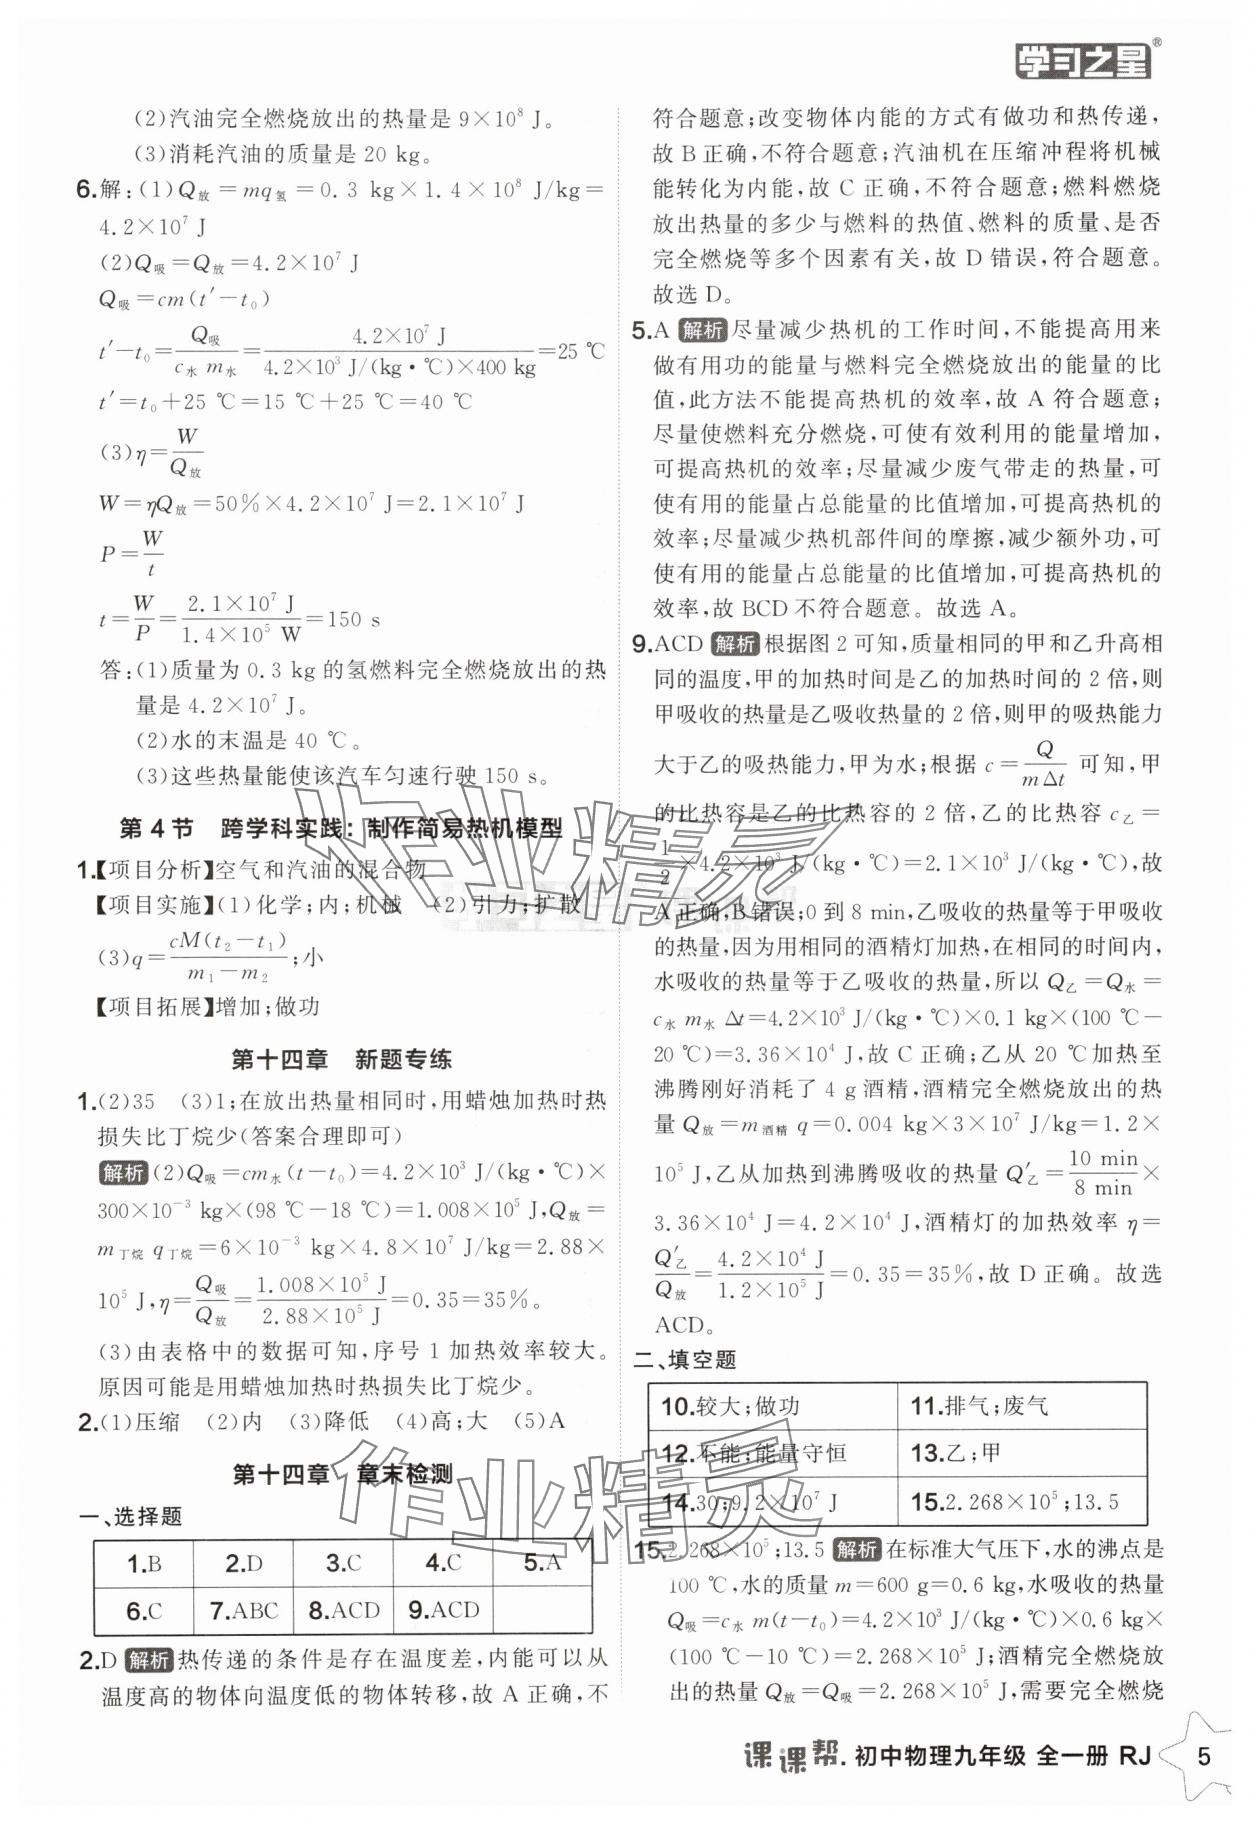 学习之星®
(2)汽油完全燃烧放出的热量是 9×10⁸ J。
(3)消耗汽油的质量是 20 kg。
6.解:(1)Q放=mq氢=0.3 kg×1.4×10⁸ J/kg=
4.2×10⁷ J
(2)Q吸=Q放=4.2×10⁷ J
Q吸=cm(t′-t₀)
t′-t₀=Q吸/(c水 m水)=4.2×10⁷ J/(4.2×10³ J/(kg·℃)×400 kg)=25 ℃
t′=t₀+25 ℃=15 ℃+25 ℃=40 ℃
(3)η=W/Q放
W=ηQ放=50%×4.2×10⁷ J=2.1×10⁷ J
P=W/t
t=W/P=2.1×10⁷ J/1.4×10⁵ W=150 s
答:(1)质量为 0.3 kg 的氢燃料完全燃烧放出的热
量是 4.2×10⁷ J。
(2)水的末温是 40 ℃。
(3)这些热量能使该汽车匀速行驶 150 s。
第 4 节 跨学科实践:制作简易热机模型
1.【项目分析】空气和汽油的混合物
【项目实施】(1)化学;内;机械 (2)引力;扩散
(3)q=cM(t₂-t₁)/(m₁-m₂);小
【项目拓展】增加;做功
第十四章 新题专练
1.(2)35 (3)1;在放出热量相同时,用蜡烛加热时热
损失比丁烷少(答案合理即可)
解析 (2)Q吸=cm水(t-t₀)=4.2×10³ J/(kg·℃)×
300×10⁻³ kg×(98 ℃-18 ℃)=1.008×10⁵ J,Q放=
m丁烷 q丁烷=6×10⁻³ kg×4.8×10⁷ J/kg=2.88×
10⁵ J,η=Q吸/Q放=1.008×10⁵ J/2.88×10⁵ J=0.35=35%。
(3)由表格中的数据可知,序号 1 加热效率较大。
原因可能是用蜡烛加热时热损失比丁烷少。
2.(1)压缩 (2)内 (3)降低 (4)高;大 (5)A
第十四章 章末检测
一、选择题
1.B 2.D 3.C 4.C 5.A
6.C 7.ABC 8.ACD 9.ACD
2.D 解析 热传递的条件是存在温度差,内能可以从
温度高的物体向温度低的物体转移,故 A 正确,不
符合题意;改变物体内能的方式有做功和热传递,
故 B 正确,不符合题意;汽油机在压缩冲程将机械
能转化为内能,故 C 正确,不符合题意;燃料燃烧
放出热量的多少与燃料的热值、燃料的质量、是否
完全燃烧等多个因素有关,故 D 错误,符合题意。
故选 D。
5.A 解析 尽量减少热机的工作时间,不能提高用来
做有用功的能量与燃料完全燃烧放出的能量的比
值,此方法不能提高热机的效率,故 A 符合题意;
尽量使燃料充分燃烧,可使有效利用的能量增加,
可提高热机的效率;尽量减少废气带走的热量,可
使有用的能量占总能量的比值增加,可提高热机的
效率;尽量减少热机部件间的摩擦,减少额外功,可
使有用的能量占总能量的比值增加,可提高热机的
效率,故 BCD 不符合题意。故选 A。
9.ACD 解析 根据图 2 可知,质量相同的甲和乙升高相
同的温度,甲的加热时间是乙的加热时间的 2 倍,则
甲吸收的热量是乙吸收热量的 2 倍,则甲的吸热能力
大于乙的吸热能力,甲为水;根据 c=Q/(mΔt) 可知,甲
的比热容是乙的比热容的 2 倍,乙的比热容 c乙=
1/2×4.2×10³ J/(kg·℃)=2.1×10³ J/(kg·℃),故
A 正确,B 错误;0 到 8 min,乙吸收的热量等于甲吸收
的热量,因为用相同的酒精灯加热,在相同的时间内,
水吸收的热量等于乙吸收的热量,所以 Q乙=Q水=
c水 m水 Δt=4.2×10³ J/(kg·℃)×0.1 kg×(100 ℃-
20 ℃)=3.36×10⁴ J,故 C 正确;乙从 20 ℃加热至
沸腾刚好消耗了 4 g 酒精,酒精完全燃烧放出的热
量 Q放=m酒精 q=0.004 kg×3×10⁷ J/kg=1.2×
10⁵ J,乙从加热到沸腾吸收的热量 Q′乙=10 min/8 min×
3.36×10⁴ J=4.2×10⁴ J,酒精灯的加热效率 η=
Q′乙/Q放=4.2×10⁴ J/1.2×10⁵ J=0.35=35%,故 D 正确。故选
ACD。
二、填空题
10.较大;做功 11.排气;废气
12.不能;能量守恒 13.乙;甲
14.30;9.2×10⁷ J 15.2.268×10⁵;13.5
15.2.268×10⁵;13.5 解析 在标准大气压下,水的沸点是
100 ℃,水的质量 m=600 g=0.6 kg,水吸收的热量
Q吸=c水 m(t-t₀)=4.2×10³ J/(kg·℃)×0.6 kg×
(100 ℃-10 ℃)=2.268×10⁵ J;酒精完全燃烧放
出的热量 Q放=Q吸=2.268×10⁵ J,需要完全燃烧
作业精灵
作业精灵
课课帮.初中物理九年级 全一册 RJ 5